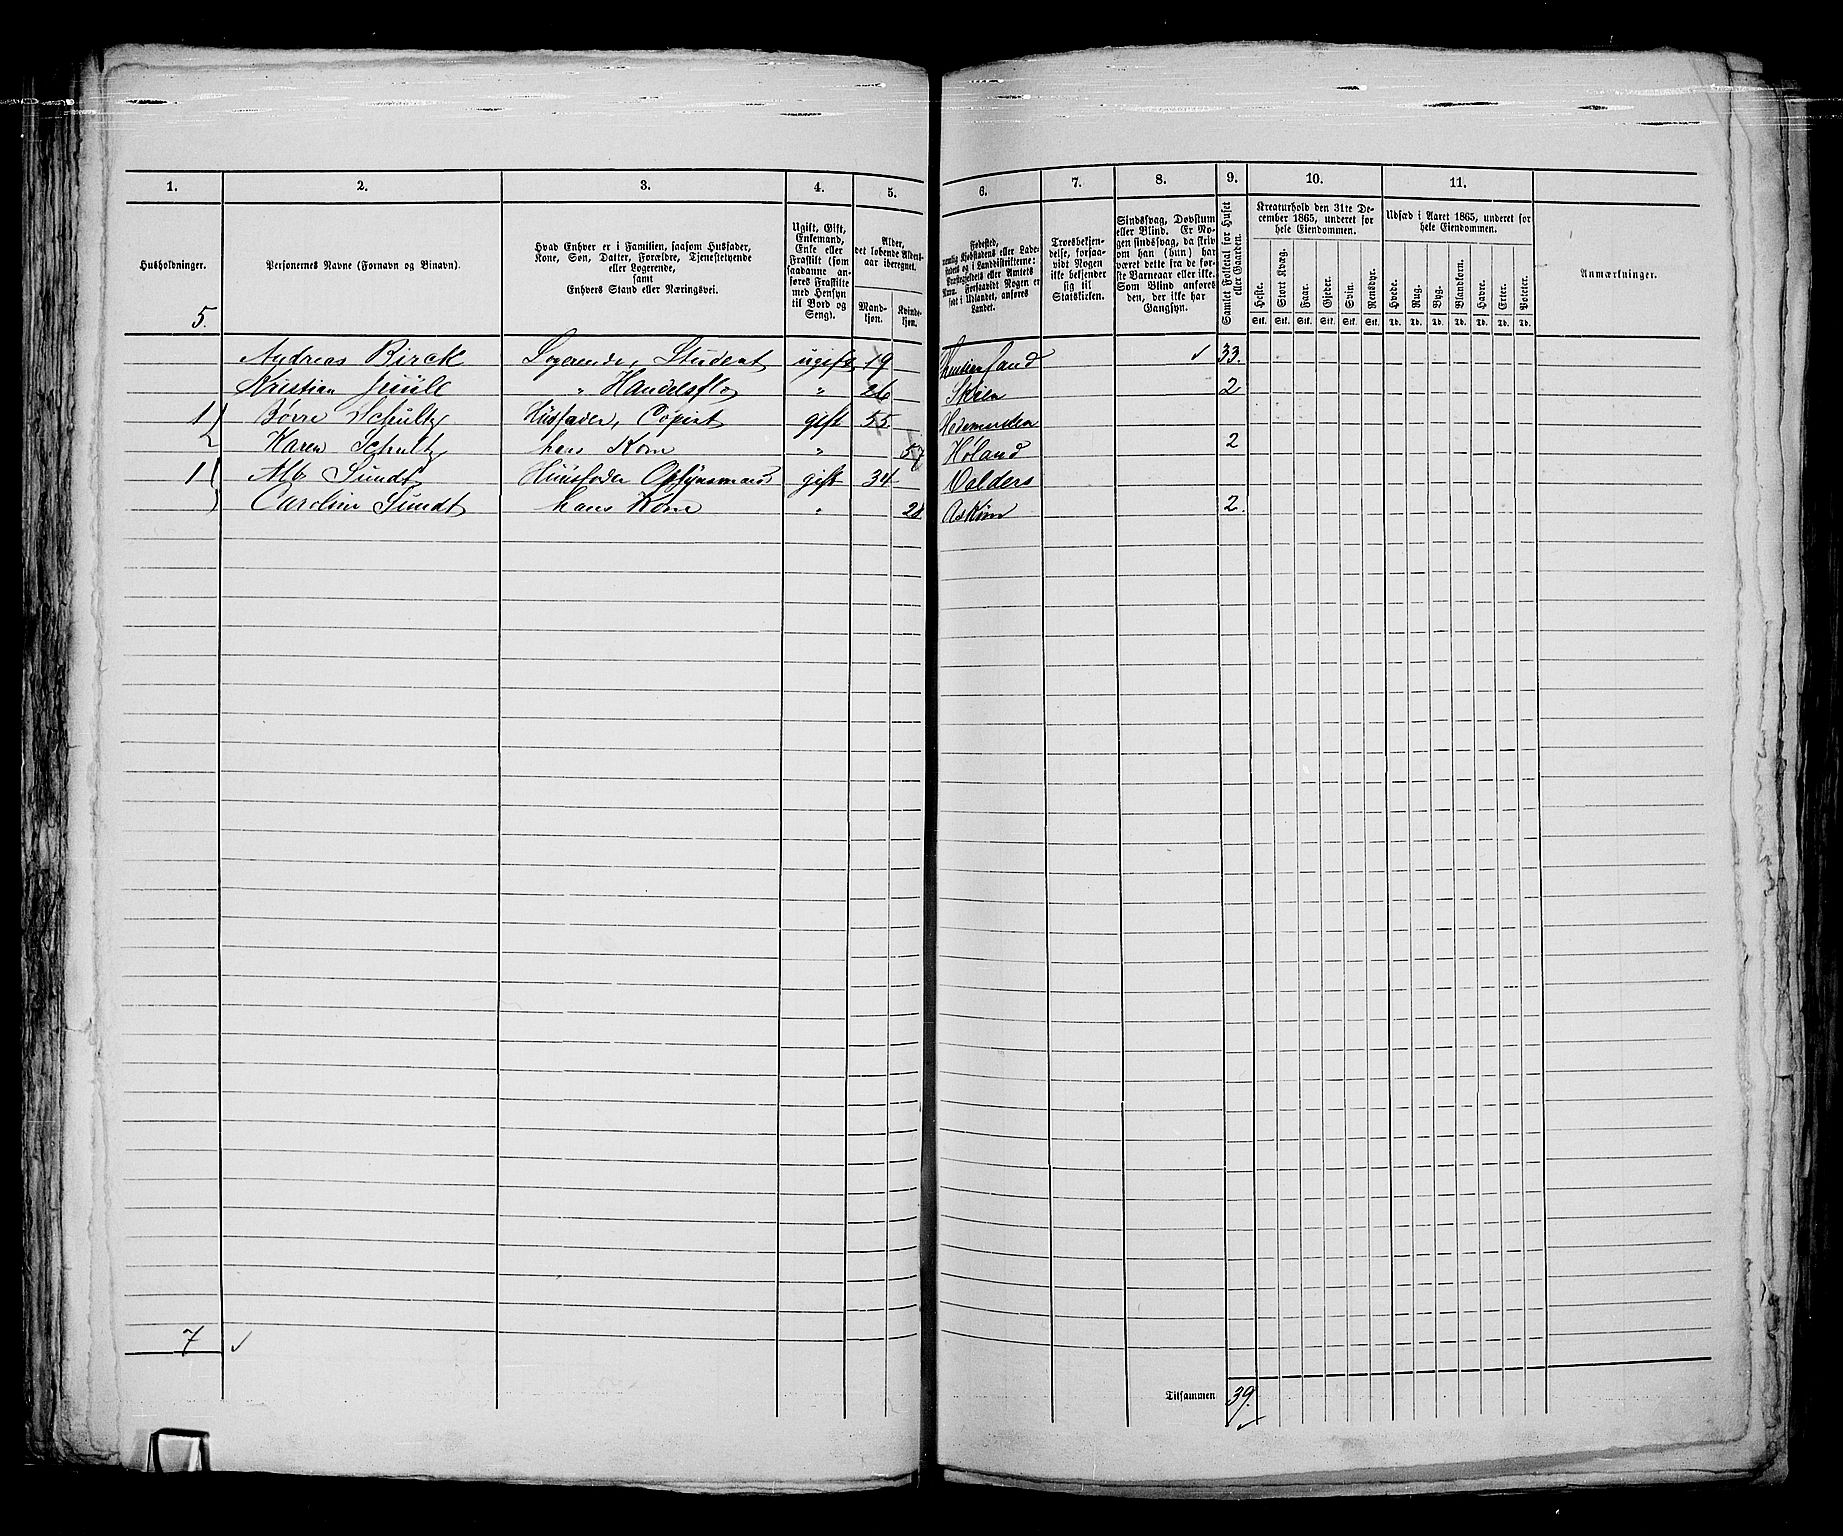 1.
2.
3.
4.
5.
6.
7.
8.
9.
10.
11.
Husholdninger.
Personernes Navne (Fornavn og Binavn).
Hvad Enhver er i Familien, saasom Husfader,
Kone, Søn, Datter, Forældre, Tjenestetyende
eller Logerende,
samt
Enhvers Stand eller Næringsvei.
Ugift, Gift,
Enkemand,
Enke eller
Fraskilt (som
saadanne an-
føres Fraskilte
med Hensyn
til Bord og
Seng).
Alder,
det løbende Alders-
aar iberegnet.
Mand-
kjøn.
Kvinde-
kjøn.
Fødested,
nemlig Kjøbstadens eller Lade-
stedets og i Landdistrikterne:
Præstegjeldets eller Amtets
Navn. Forsaavidt Nogen er
født i Udlandet, anføres
Landet.
Troesbekjen-
delse, forsaa-
vidt Nogen
ikke bekjender
sig til
Statskirken.
Sindssvag, Døvstum
eller Blind. Er No-
gen sindssvag, da skriv
om han (hun) har
været dette fra de før-
ste Barneaar eller ikke.
Som Blind anføres
den, der ikke har
Gangsyn.
Samlet Folketal for Huset
eller Gaarden.
Kreaturhold den 31te De-
cember 1865, underet for
hele Eiendommen.
Heste. Stort Kvæg. Faar. Gjeder. Svin. Rensdyr.
Stk. Stk. Stk. Stk. Stk. Stk.
Udsæd i Aaret 1865, underet for
hele Eiendommen.
Hvede. Rug. Byg. Blandkorn. Havre. Erter. Poteter.
Td. Td. Td. Td. Td. Td. Td.
Anmærkninger.
5.
Andreas Birck Logerende, Student ugift 19 Christiansand 33.
Kristian Juull " Handelsflg " 26 Skien 2
1 Børre Schultz Husfader, Copist gift 55 Hedemarken
Karen Schultz hans Kone " 57 Høland 2
1 Alb Sundt Huusfader Opsynsmand gift 34 Valders
Caroline Sundt hans Kone " 28 Askim 2.
7
Tilsammen 39.